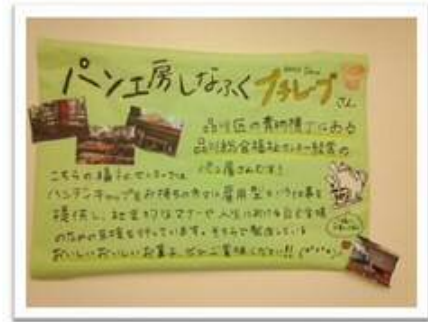 パン工房しなふく プチレーブ さん
品川区の青物横丁にある
品川総合福祉センター経営の
パン屋さんです!
こちらの福祉センターでは
ハンディキャップをお持ちの方に雇用型という仕事を
提供し、社会的なマナーや人生における自己実現
のための支援を行っています。そちらで製造している
おいしいおいしいお菓子、ぜひご賞味ください!!